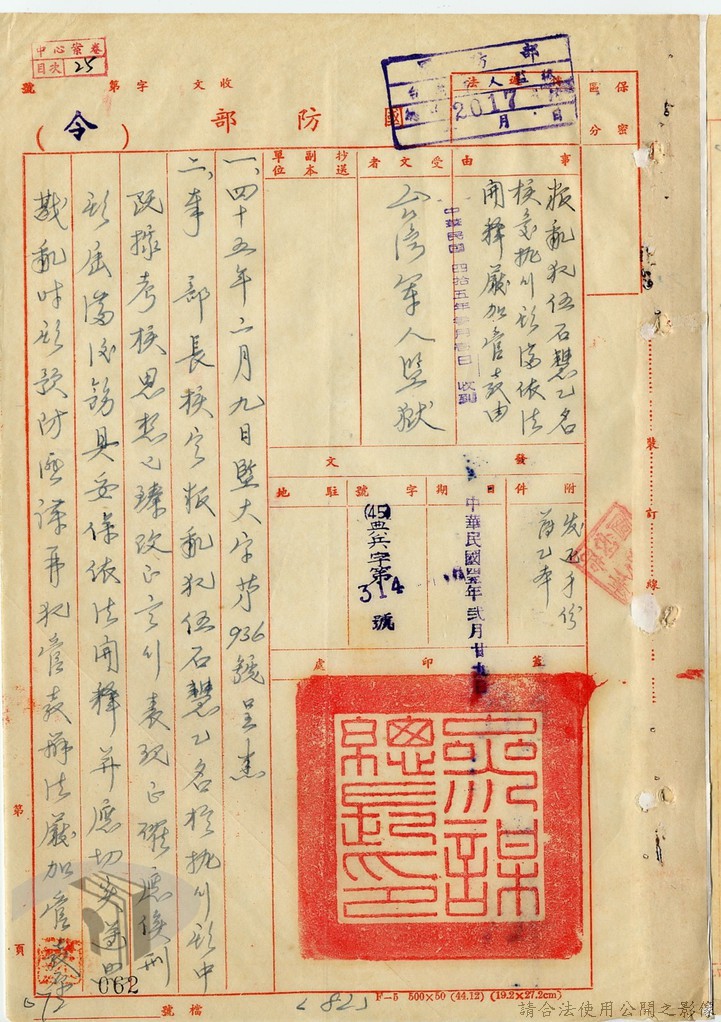 中心案卷
目次 25
收文 字第 號
國防部
(令)
保密區分
事由
叛亂犯伍石慧乙名
執行期滿依法
開釋嚴加管教由
中華民國四拾五年 月 日收到
2017
受文者
台灣軍人監獄
抄送副本單位
發文
附件
日期
字號
駐地
中華民國四五年貳月廿九日
(45)典兵字第
314
號
蓋印處
參謀總長印
一、四十五年二月九日監大字第936號呈悉
二、奉 部長核定叛亂犯伍石慧乙名於執行期中
既據考核思想已臻改正言行表現正確應俟刑
期屆滿後飭具妥保依法開釋并應切實遵照
戡亂時期預防匪諜再犯管教辦法嚴加管教
裝訂線
第 頁
檔號
062
072
<82>
F-5 500×50 (44.12) (19.2×27.2cm)
請合法使用公開之影像